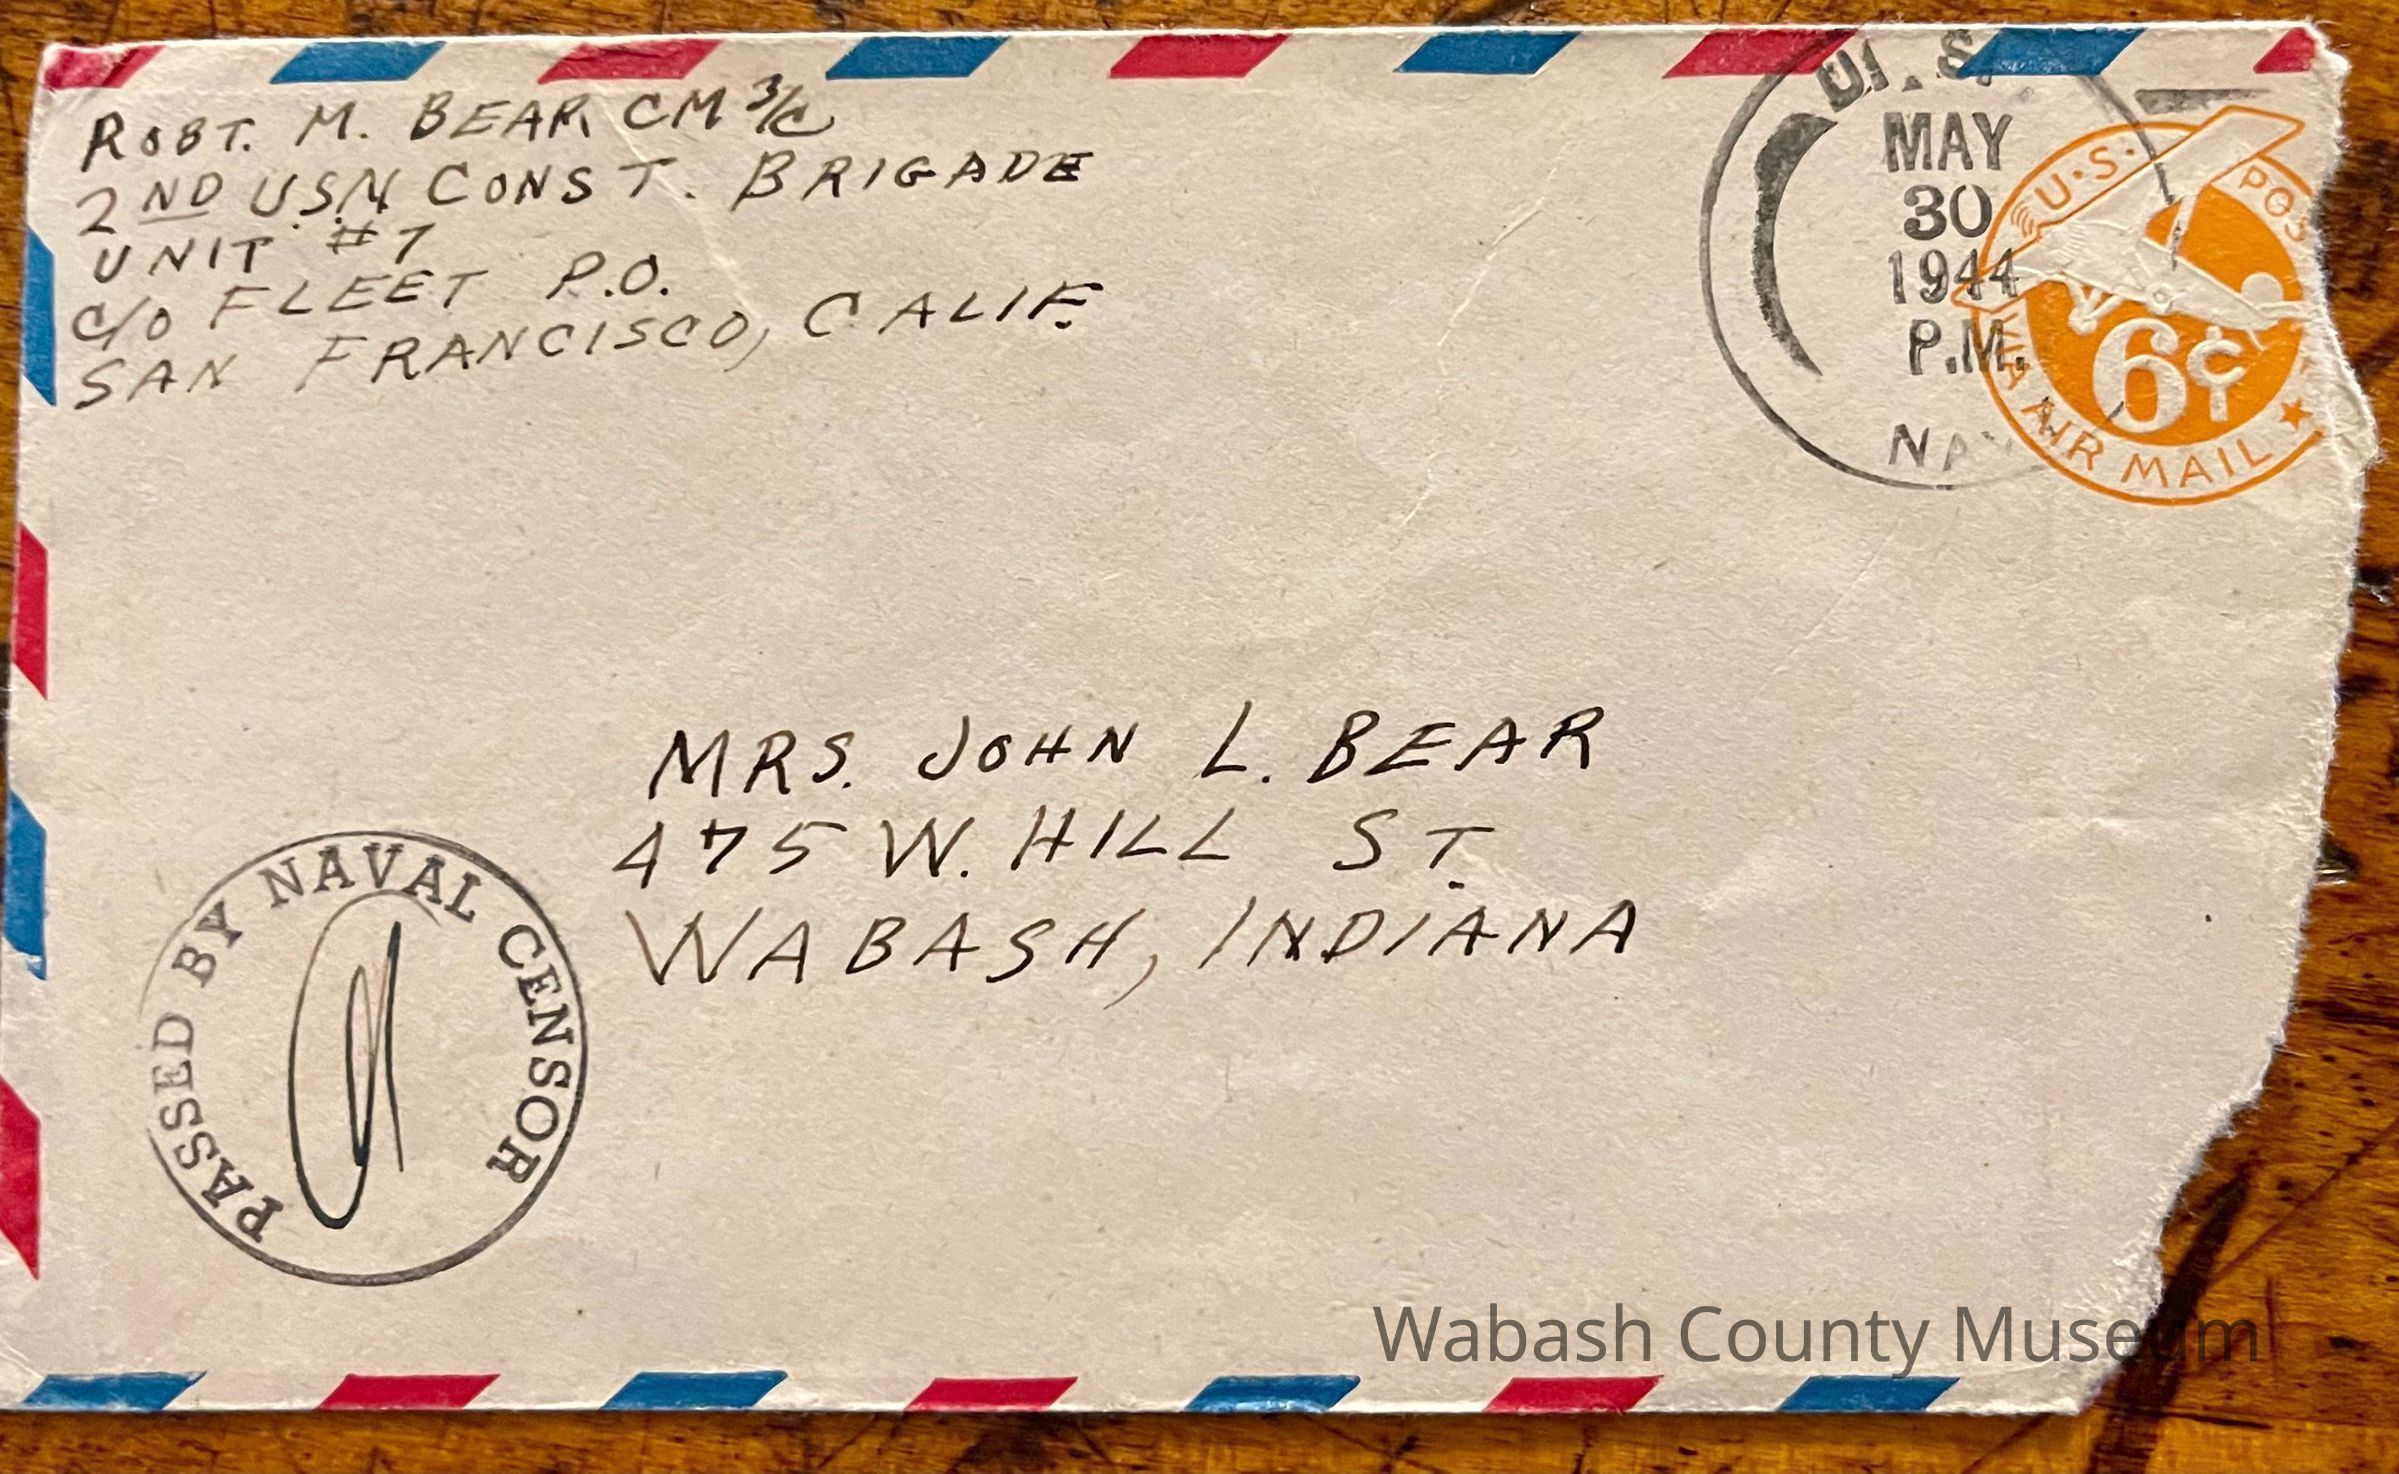 ROBT. M. BEAR CM 3/C
2ND U.S.N. CONST. BRIGADE
UNIT #7
C/O FLEET P.O.
SAN FRANCISCO, CALIF.
U.S.
MAY
30
1944
P.M.
U.S. POS
6¢
VIA AIR MAIL
MRS. JOHN L. BEAR
475 W. HILL ST.
WABASH, INDIANA
PASSED BY NAVAL CENSOR
Wabash County Museum